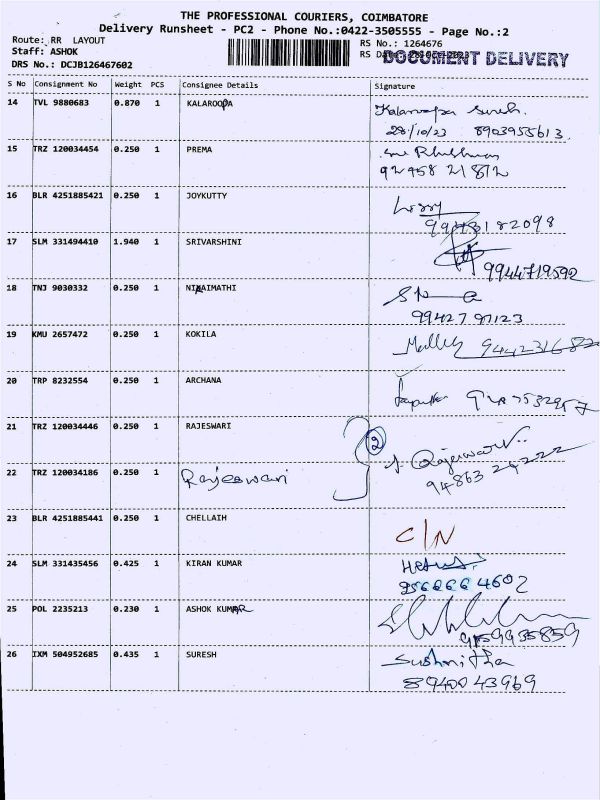 THE PROFESSIONAL COURIERS, COIMBATORE
Delivery Runsheet - PC2 - Phone No.:0422-3505555 - Page No.:2
Route: RR LAYOUT
RS No.: 1264676
Staff: ASHOK
RS
DOCUMENT DELIVERY
DRS No.: DCJB126467602
S No Consignment No Weight PCS Consignee Details Signature
14 TVL 9880683 0.870 1 KALAROOPA
28/10/23 8903955613.
15 TRZ 120034454 0.250 1 PREMA
92458 21812
16 BLR 4251885421 0.250 1 JOYKUTTY
17 SLM 331494410 1.940 1 SRIVARSHINI
9944719592
18 TNJ 9030332 0.250 1
19 KMU 2657472 0.250 1 KOKILA
20 TRP 8232554 0.250 1 ARCHANA
21 TRZ 120034446 0.250 1 RAJESWARI
2
22 TRZ 120034186 0.250 1 Rajeswari
23 BLR 4251885441 0.250 1 CHELLAIH
C/N
24 SLM 331435456 0.425 1 KIRAN KUMAR
25 POL 2235213 0.230 1 ASHOK KUMAR
9159935859
26 IXM 504952685 0.435 1 SURESH
Sushmitha
8940043969